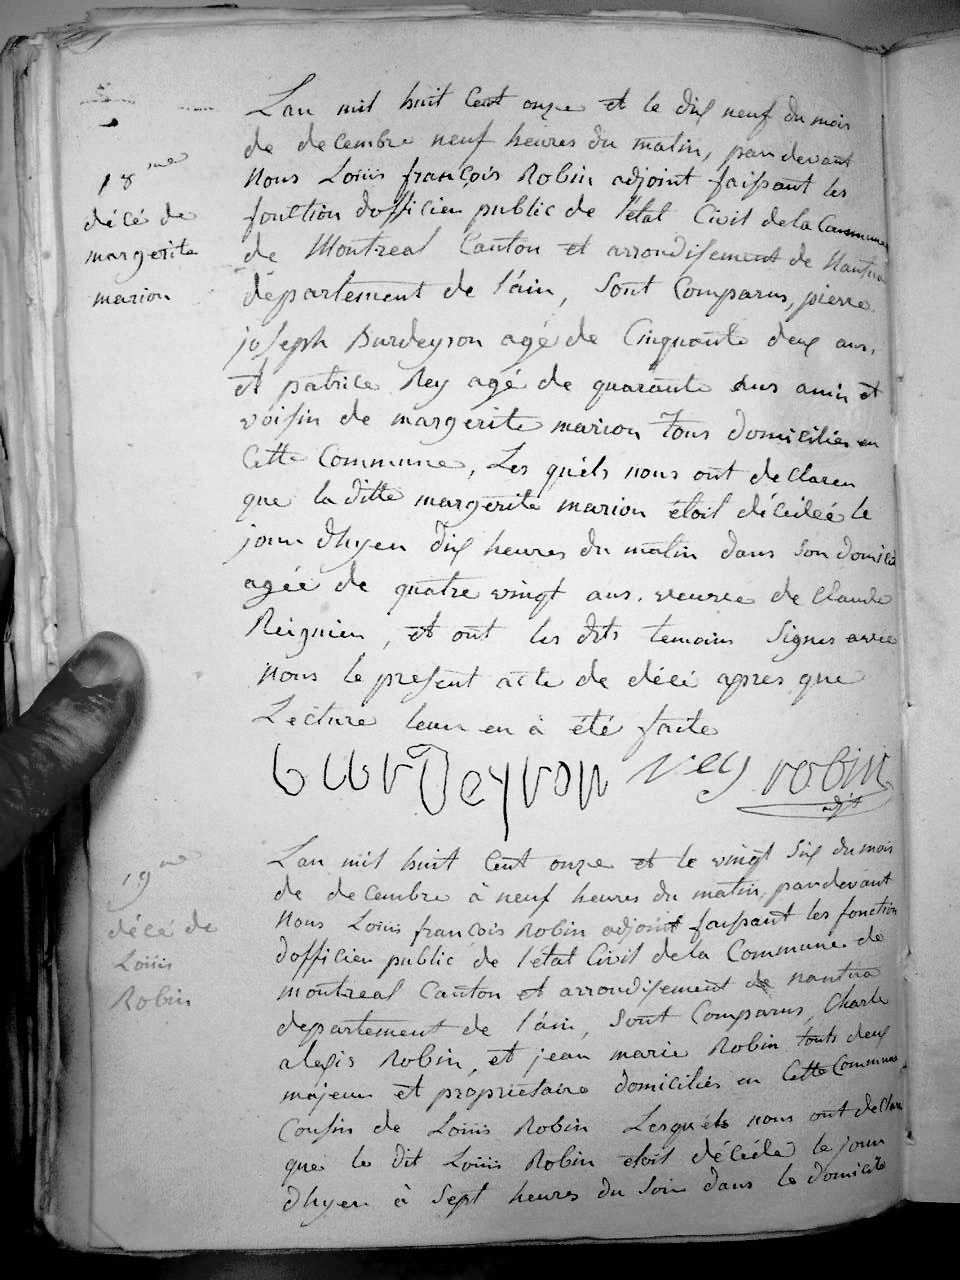 18me
décé de
margerite
marion
Lan mil huit Cent onze et le dix neuf du mois
de decembre neuf heures du matin, pardevant
nous Louis françois Robin adjoint faissant les
fonction dofficier public de létat Civil de la Commune
de Montreal Canton et arrondisement de Nantua
département de láin, Sont Comparus, pierre
joseph Burdeyron agé de Cinquante deux ans,
et patrice Rey agé de quarante ans amis et
voisin de margerite marion tous domiciliés en
Cette Commune, Les quéls nous ont declaren
que la ditte margerite marion étoit décédeé le
jour dhyer dix heures du matin dans son domicil
agée de quatre vingt ans. veuvee de Claude
Reignier, et ont les dits temoins Signes avec
nous le present acte de décé apres que
Lecture leur en à été faite
burDeyron rey robin
adjt
19me
décé de
Louis
Robin
Lan mil huit Cent onze et le vingt Six du mois
de decembre à neuf heures du matin, pardevant
nous Louis francois Robin adjoint faissant les fonction
dofficier public de létat Civil de la Commune de
montreal Canton et arrondisement de nantua
departement de láin, Sont Comparus, Charle
alexis Robin, et jean marie Robin touts deux
majeur et proprietaire domiciliés en Cette Commune
Cousin de Louis Robin Lesquéls nous ont declare
que le dit Louis Robin etoit décédé le jour
dhyer à Sept heures du Soir dans le domicile